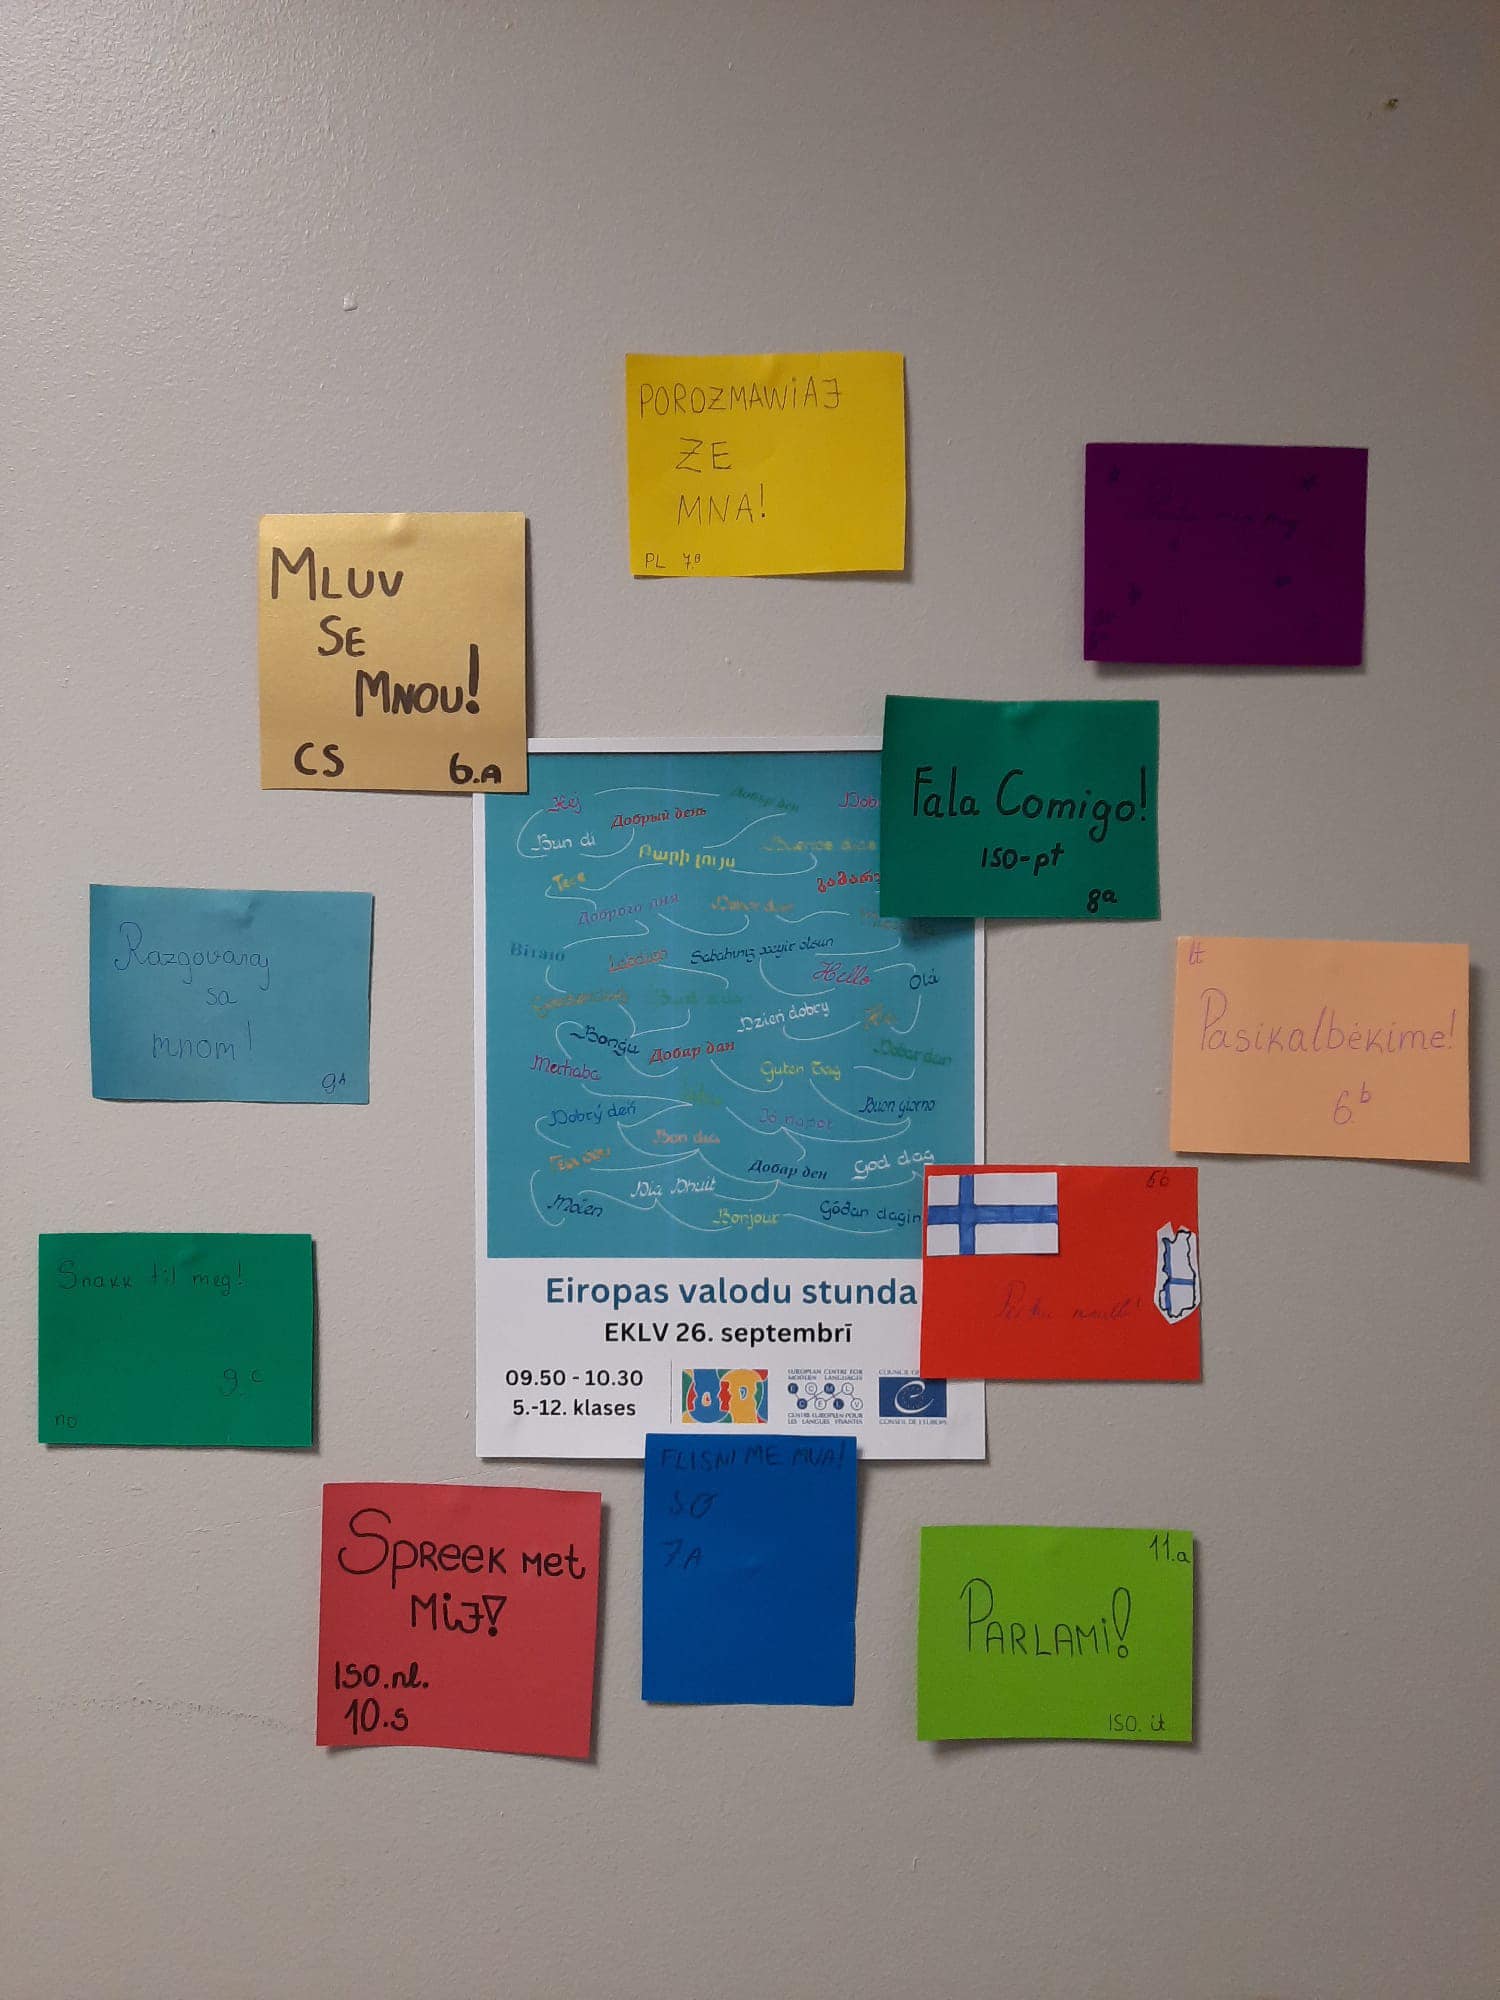 POROZMAWiAJ
ZE
MNA!
PL 7.B
MLUV
SE
MNOU!
CS 6.A
Fala Comigo!
ISO-pt
8a
Razgovaraj
sa
mnom!
9A
lt
Pasikalbėkime!
6.b
Hej
Добрый день
Добар ден
Bun di
Բարի լույս
Tere
Доброго дня
Sabahınız xeyir olsun
Hello
Olá
Dzień dobry
Bonġu
Добар дан
Dobar dan
Merhaba
Guten Tag
Dobrý deň
Buon giorno
Jó napot
Bon dia
Добар ден
God dag
Dia Dhuit
Moien
Bonjour
Góðan dagin
Eiropas valodu stunda
EKLV 26. septembrī
09.50 - 10.30
5.-12. klases
EUROPEAN CENTRE FOR
MODERN LANGUAGES
E C M L
C E L V
CENTRE EUROPEEN POUR
LES LANGUES VIVANTES
CONSEIL DE L'EUROPE
5b
Snakk til meg!
9.c
no
SPReeK MeT
MiJ!
ISO.nl.
10.s
FLISNI ME MUA!
SQ
7A
11.a
PARLAMi!
ISO. it